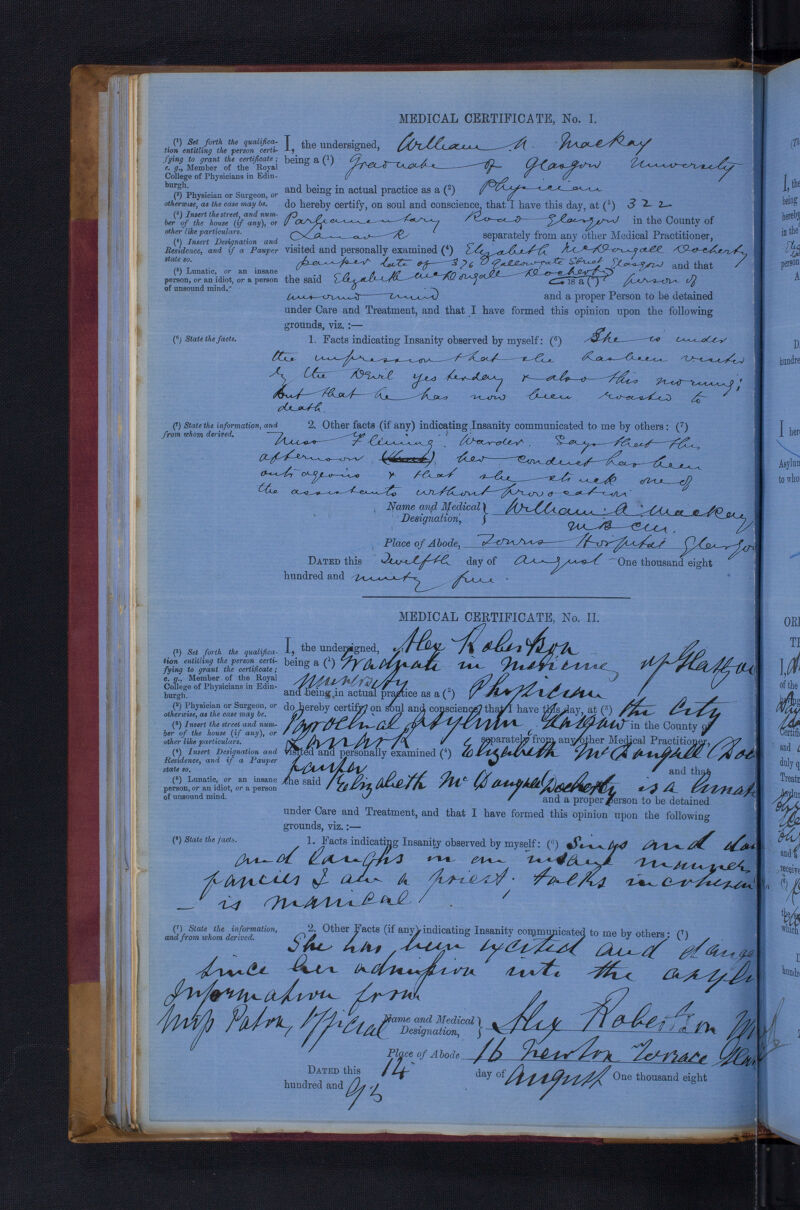 MEDICAL CERTIFICATE, No. I.
(¹) Set forth the qualifica-
tion entitling the person certi-
fying to grant the certificate;
e. g., Member of the Royal
College of Physicians in Edin-
burgh.
(²) Physician or Surgeon, or
otherwise, as the case may be.
(³) Insert the street, and num-
ber of the house (if any), or
other like particulars.
(⁴) Insert Designation and
Residence, and if a Pauper
state so.
(⁵) Lunatic, or an insane
person, or an idiot, or a person
of unsound mind.
I, the undersigned, William A. Mackay
being a (¹) Graduate of Glasgow University
and being in actual practice as a (²) Physician
do hereby certify, on soul and conscience, that I have this day, at (³) 322
Parliamentary Road Glasgow in the County of
Lanark separately from any other Medical Practitioner,
visited and personally examined (⁴) Elizabeth McDougall Docherty
pauper late of 376 Gallowgate Street Glasgow and that
the said Elizabeth McDougall Docherty is a (⁵) person of
unsound mind and a proper Person to be detained
under Care and Treatment, and that I have formed this opinion upon the following
grounds, viz. :—
(⁶) State the facts.
1. Facts indicating Insanity observed by myself: (⁶) She is under
the impression that she has been visited
by the Devil yesterday & also this morning;
but that he has now been roasted to
death.
(⁷) State the information, and
from whom derived.
2. Other facts (if any) indicating Insanity communicated to me by others: (⁷)
Miss Fleming, Warder, says that this
afternoon her conduct has been
outrageous & that she struck one of
the assistants without provocation
Name and Medical Designation, William A. Mackay
M B CM.
Place of Abode, Towns Hospital Glasgow
DATED this Twelfth day of August One thousand eight
hundred and ninety five.
MEDICAL CERTIFICATE, No. II.
(¹) Set forth the qualifica-
tion entitling the person certi-
fying to grant the certificate;
e. g., Member of the Royal
College of Physicians in Edin-
burgh.
(²) Physician or Surgeon, or
otherwise, as the case may be.
(³) Insert the street and num-
ber of the house (if any), or
other like particulars.
(⁴) Insert Designation and
Residence, and if a Pauper
state so.
(⁵) Lunatic, or an insane
person, or an idiot, or a person
of unsound mind.
I, the undersigned, Alex Robertson
being a (¹) Graduate in Medicine of Glasgow
University
and being in actual practice as a (²) Physician
do hereby certify, on soul and conscience, that I have this day, at (³) the City
Parochial Asylum Glasgow in the County of
Lanark separately from any other Medical Practitioner,
visited and personally examined (⁴) Elizabeth McDougall Doc
Pauper and that
the said Elizabeth McDougall Docherty is a lunatic
and a proper Person to be detained
under Care and Treatment, and that I have formed this opinion upon the following
grounds, viz. :—
(⁶) State the facts.
1. Facts indicating Insanity observed by myself: (⁶) Sings and
and laughs in an insane manner
fancies I am a priest; talks
— is maniacal
(⁷) State the information,
and from whom derived.
2. Other Facts (if any) indicating Insanity communicated to me by others: (⁷)
She has been excited and
since her admission into the
Information from
Miss Paton, Official
Name and Medical Designation, Alex Robertson
Place of Abode 16 Newton Terrace
DATED this 14 day of August One thousand eight
hundred and 95